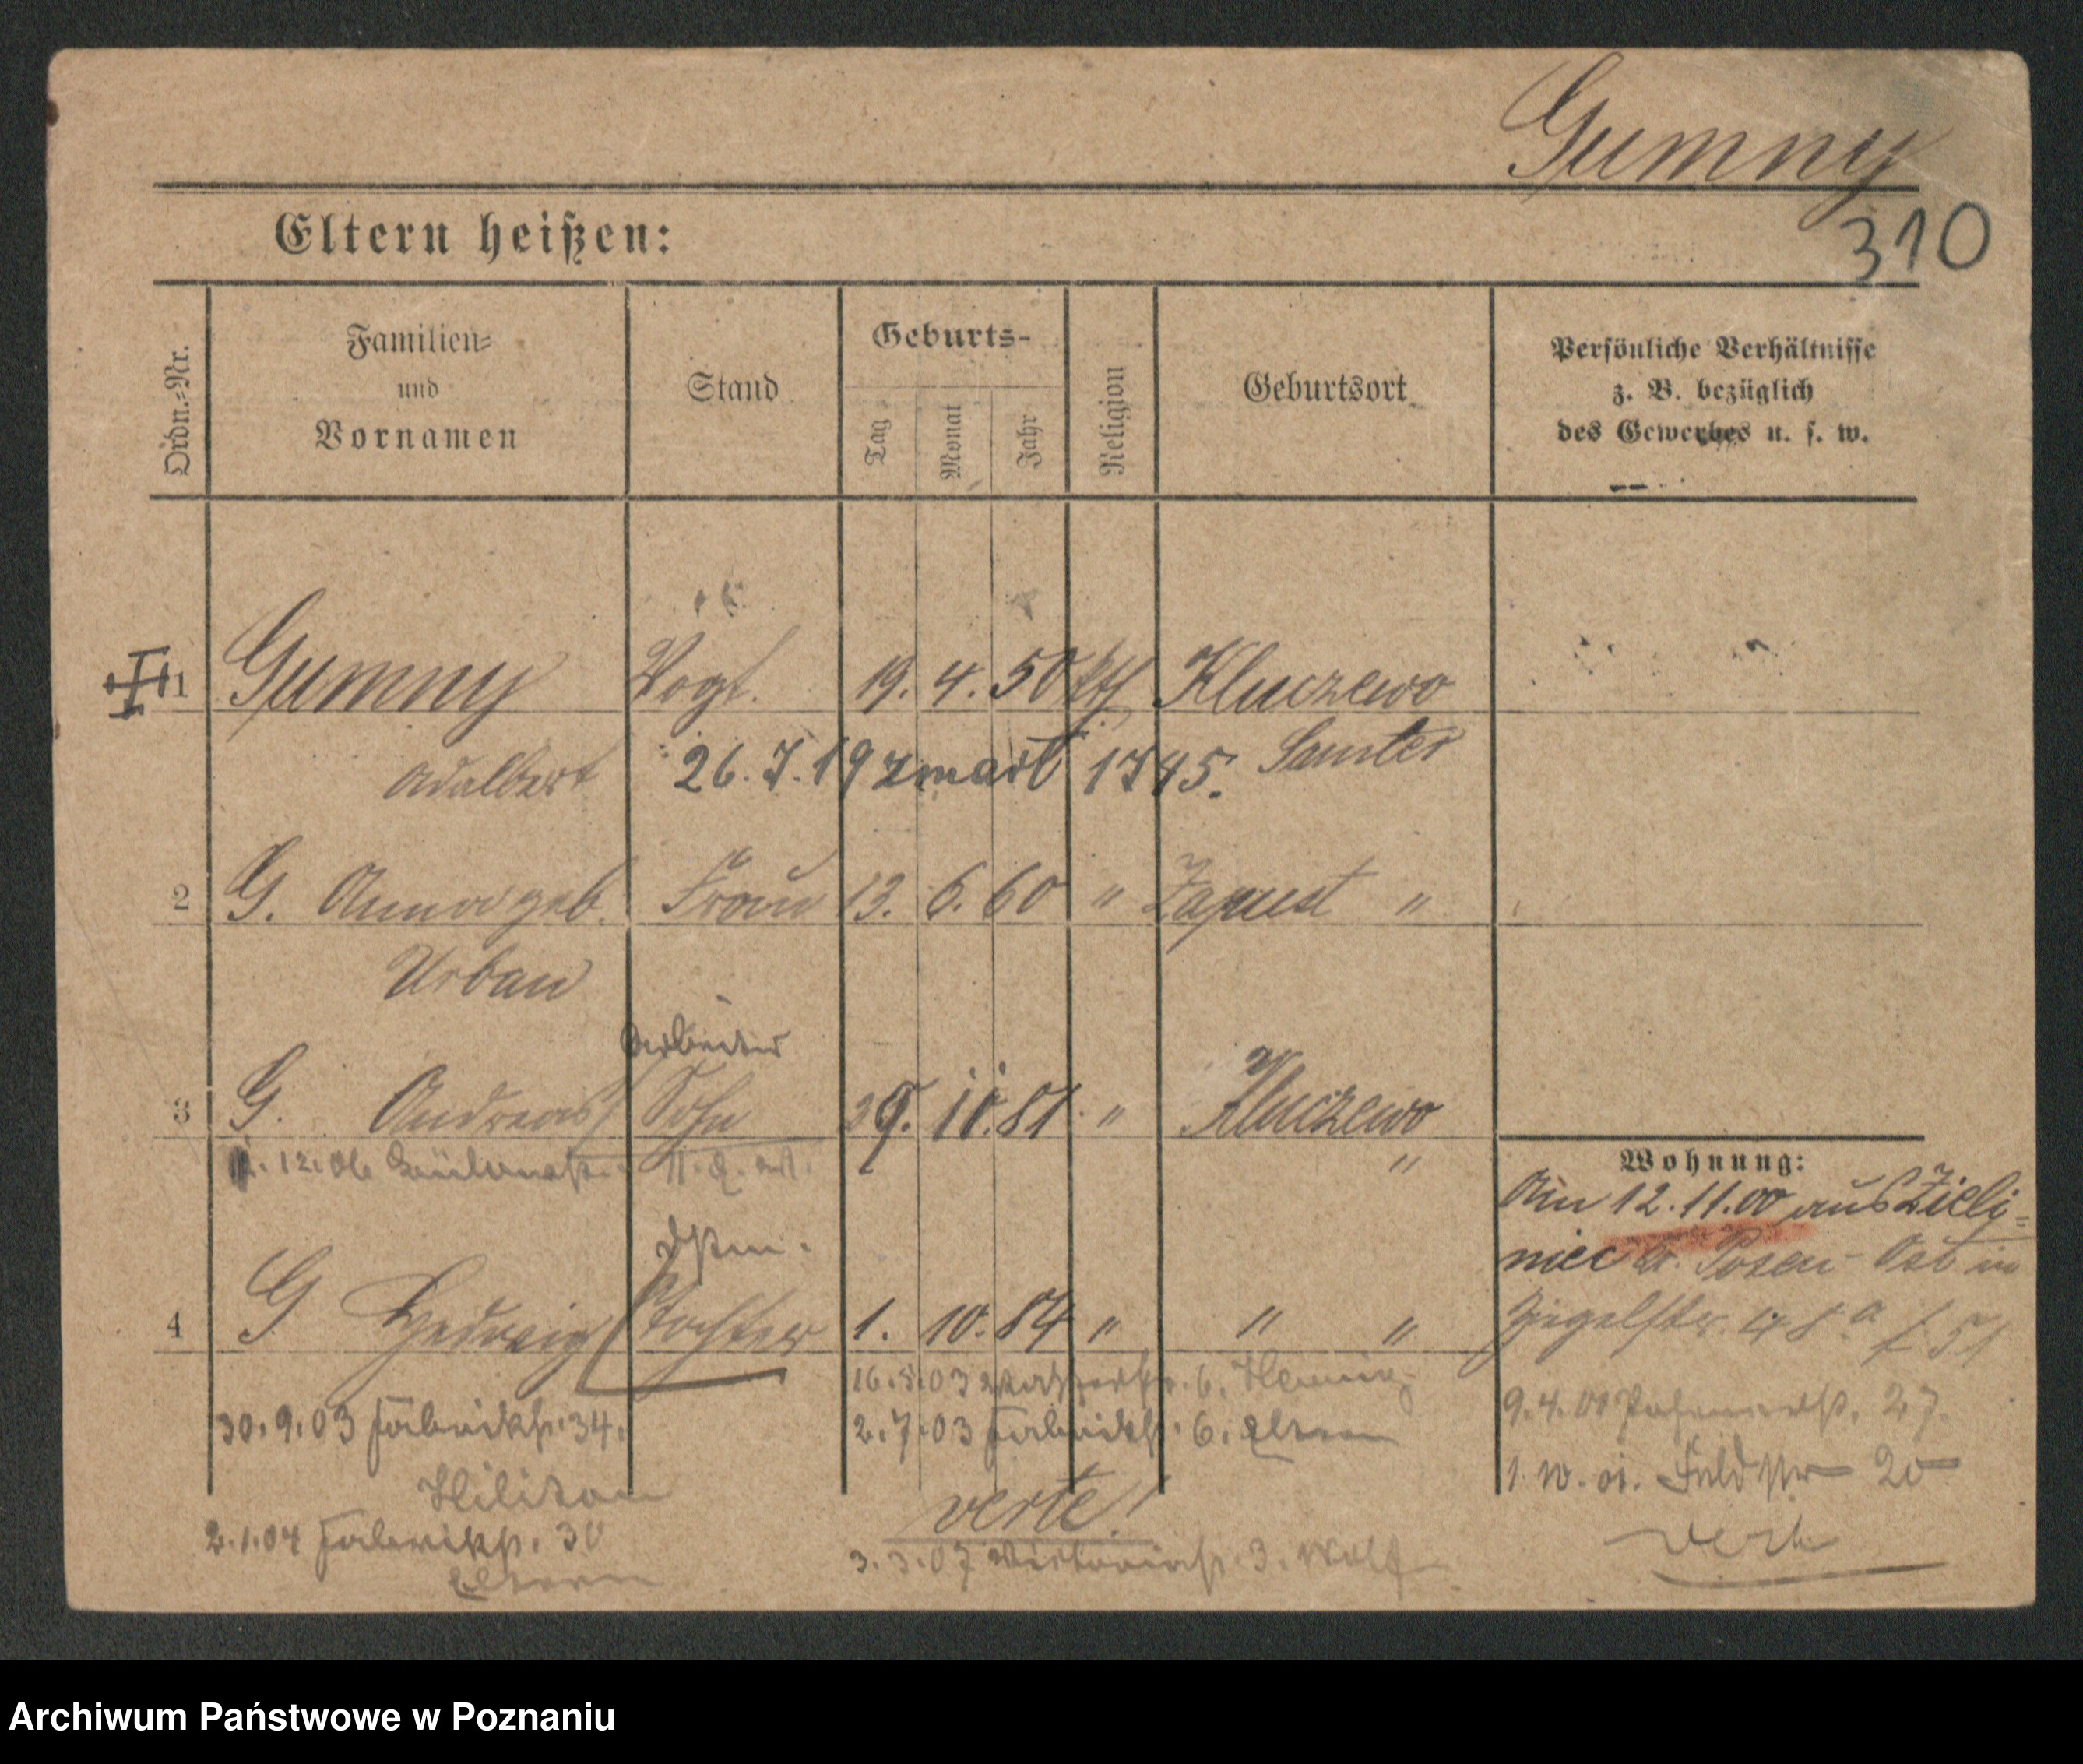 Gumny
310
Eltern heißen:
Ordn.-Nr.
Familien-
und
Vornamen
Stand
Geburts-
Tag
Monat
Jahr
Religion
Geburtsort
Persönliche Verhältnisse
z. B. bezüglich
des Gewerbes u. s. w.
1 Gumny Vogt. 19. 4. 50 kth Kluczewo
Adalbert 26.7.19 zmarł 1745. Samter
2 G. Anna geb. Frau 13. 6. 60 " Zapust "
Urban
Arbeiter
3 G. Andreas Sohn 29. 11. 81 " Kluczewo
"
Wohnung:
Am 12.11.00 aus Zieli-
niec Kr. Posen-Ost in
4 G Hedwig Tochter 1. 10. 84 " " "
Ziegelstr. 48a
16.5.03 6. Hennig
30.9.03 Fabrikstr. 34.
2.7.03 Fabrikstr. 6. Eltern
9.4.01 27.
1.10.01. Feldstr 20
verte!
2.1.04 Fabrikstr. 30
Eltern
3.3.07 Viktoriastr. 3. Wolf
verte
Archiwum Państwowe w Poznaniu